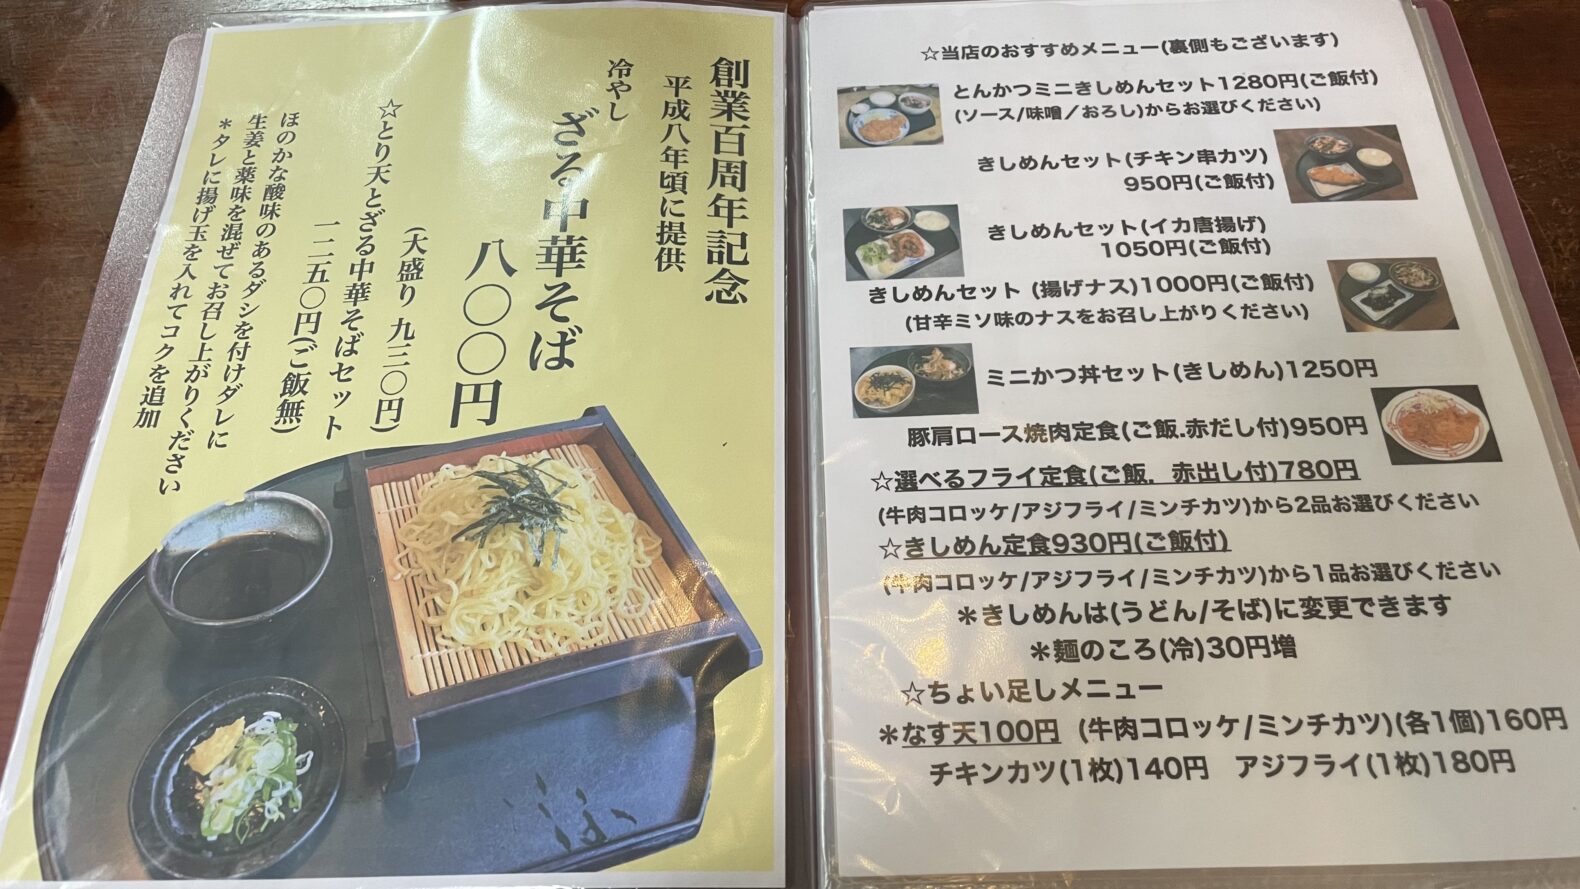 創業百周年記念
平成八年頃に提供
冷やし
ざる中華そば
八〇〇円
(大盛り 九三〇円)
☆とり天とざる中華そばセット
一二五〇円(ご飯無)
ほのかな酸味のあるダシを付けダレに
生姜と薬味を混ぜてお召し上がりください
＊タレに揚げ玉を入れてコクを追加
☆当店のおすすめメニュー(裏側もございます)
とんかつミニきしめんセット1280円(ご飯付)
(ソース/味噌／おろし)からお選びください)
きしめんセット(チキン串カツ)
950円(ご飯付)
きしめんセット(イカ唐揚げ)
1050円(ご飯付)
きしめんセット (揚げナス)1000円(ご飯付)
(甘辛ミソ味のナスをお召し上がりください)
ミニかつ丼セット(きしめん)1250円
豚肩ロース焼肉定食(ご飯.赤だし付)950円
☆選べるフライ定食(ご飯．赤出し付)780円
(牛肉コロッケ/アジフライ/ミンチカツ)から2品お選びください
☆きしめん定食930円(ご飯付)
(牛肉コロッケ/アジフライ/ミンチカツ)から1品お選びください
＊きしめんは(うどん/そば)に変更できます
＊麺のころ(冷)30円増
☆ちょい足しメニュー
＊なす天100円 (牛肉コロッケ/ミンチカツ)(各1個)160円
チキンカツ(1枚)140円 アジフライ(1枚)180円